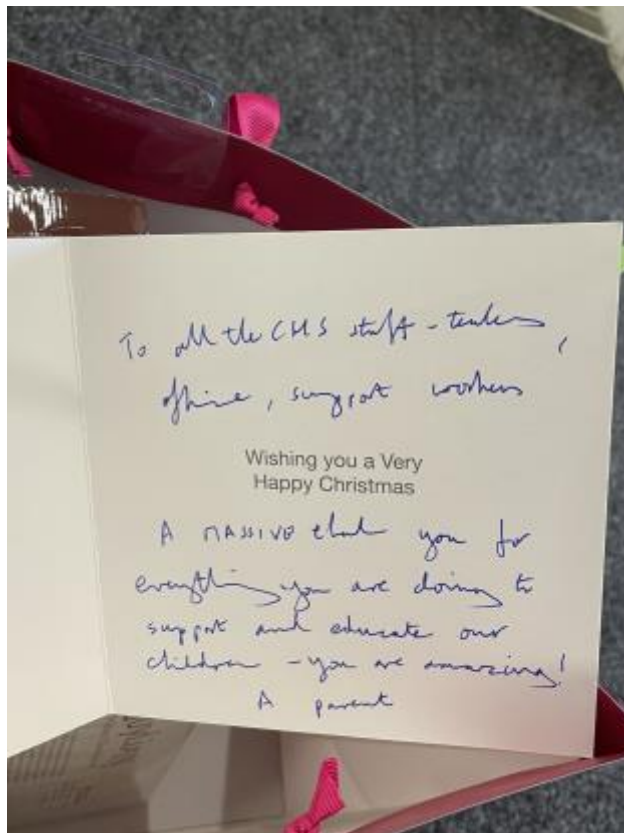 To all the CHS staff - teachers,
office, support workers
Wishing you a Very
Happy Christmas
A MASSIVE thank you for
everything you are doing to
support and educate our
children - you are amazing!
A parent